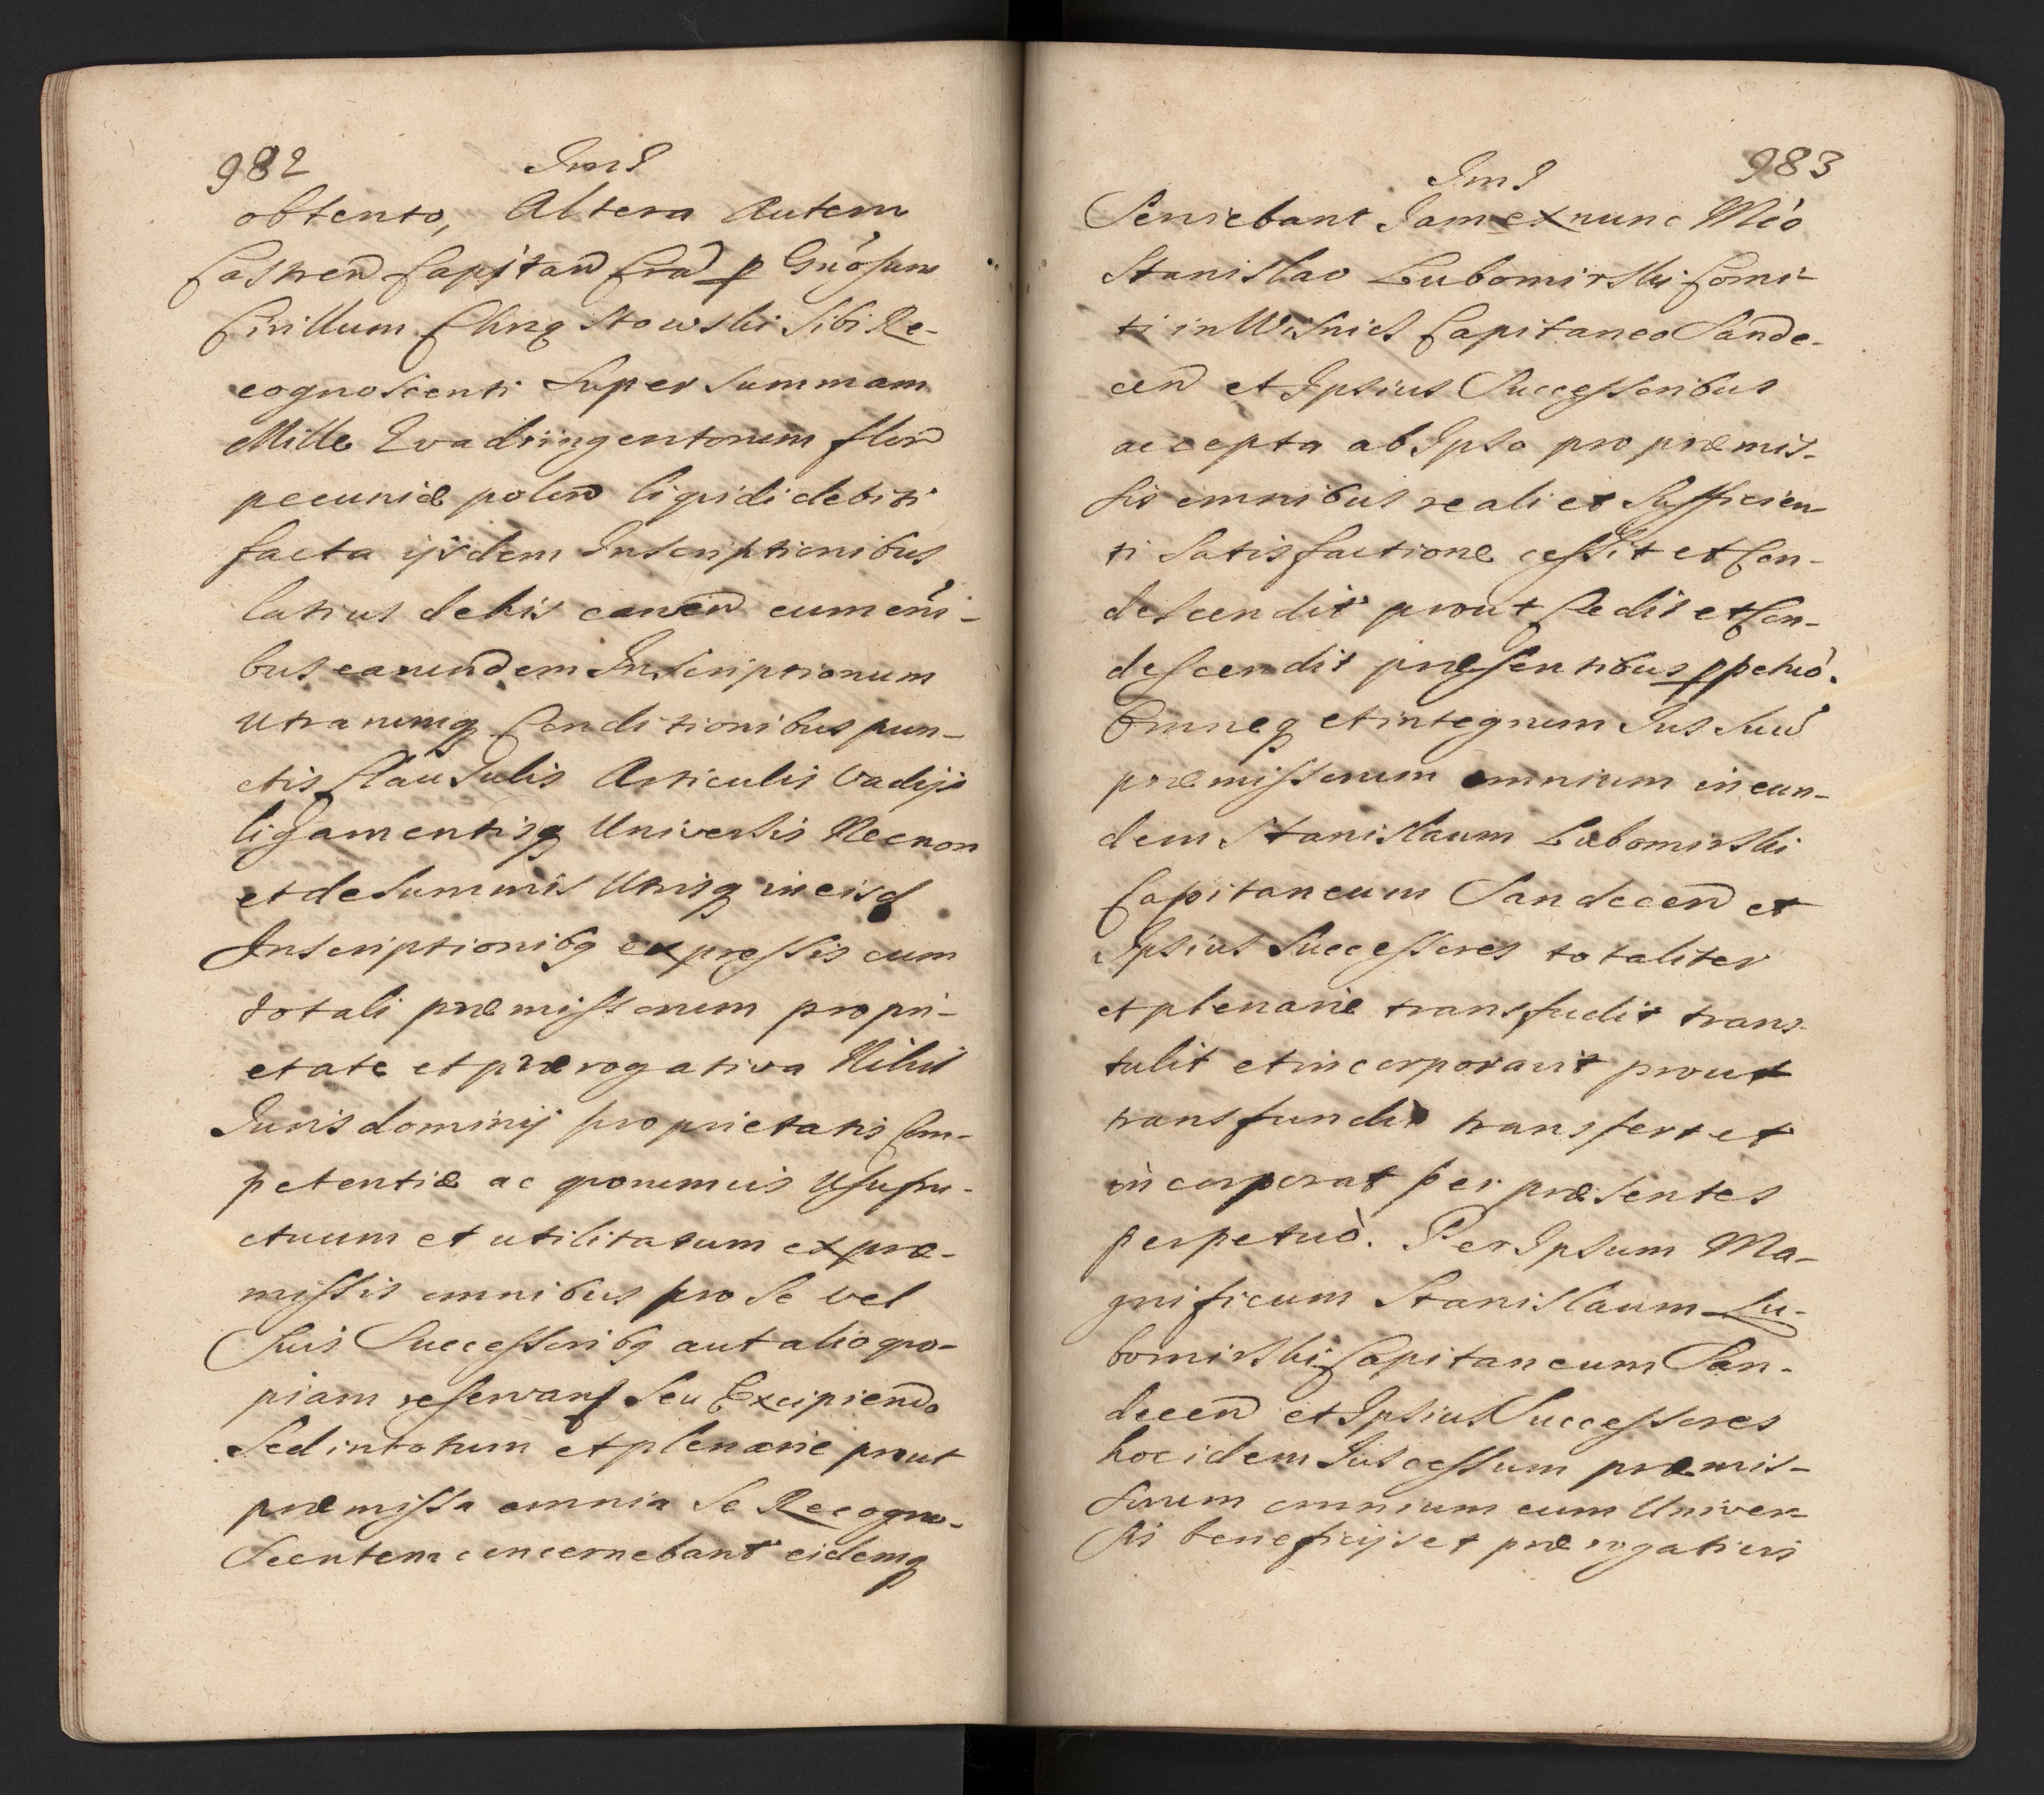 982
JmJ
obtento, Altera Autem
Castren Capitan Crac p Gnosum
Cirillum Chrząstowski Sibi Re-
cognoscenti Super Summam
Mille Quadringentorum flor
pecuniæ polon liquidi debiti
facta ijsdem Inscriptionibus
latius de his canen cum omi-
bus earundem Inscriptionum
Utrarumq Conditionibus pun-
ctis Clausulis Articulis Vadijs
ligamentisq Universis Necnon
et de Summis Utrisq in eisd
Inscriptionibq expressis cum
totali præmissorum propri-
etate et prærogativa Nihil
Juris dominij proprietatis Com-
petentiæ ac quorumvis Usufru-
ctuum et utilitatum ex præ-
missis omnibus pro Se vel
Suis Successoribq aut alio quo-
piam reservans Seu Excipiendo
Sed in totum et plenarie prout
præmissa omnia Se Recogno-
Scentem concernebant eidemq
983
JmJ
Serviebant Jam ex nunc Mco
Stanislao Lubomirski Comi-
ti in Wisnicz Capitaneo Sande-
cen et Ipsius Successoribus
accepta ab Ipso pro præmis-
sis omnibus reali et Sufficien-
ti Satisfactione cessit et Con-
descendit prout Cedit et Con-
descendit præsentibus ppetuò.
Omneq et integrum Jus Suu
præmissorum omnium in eun-
dem Stanislaum Lubomirski
Capitaneum Sandecen et
Ipsius Successores totaliter
et plenarie transfudit trans-
tulit et incorporavit prout
transfundit transfert et
incorporat per præsentes
perpetuò. Per Ipsum Ma-
gnificum Stanislaum Lu-
bomirski Capitaneum San-
decen et Ipsius Successores
hoc idem Jus cessum præmis-
sorum omnium cum Univer-
sis beneficijs et prærogativis